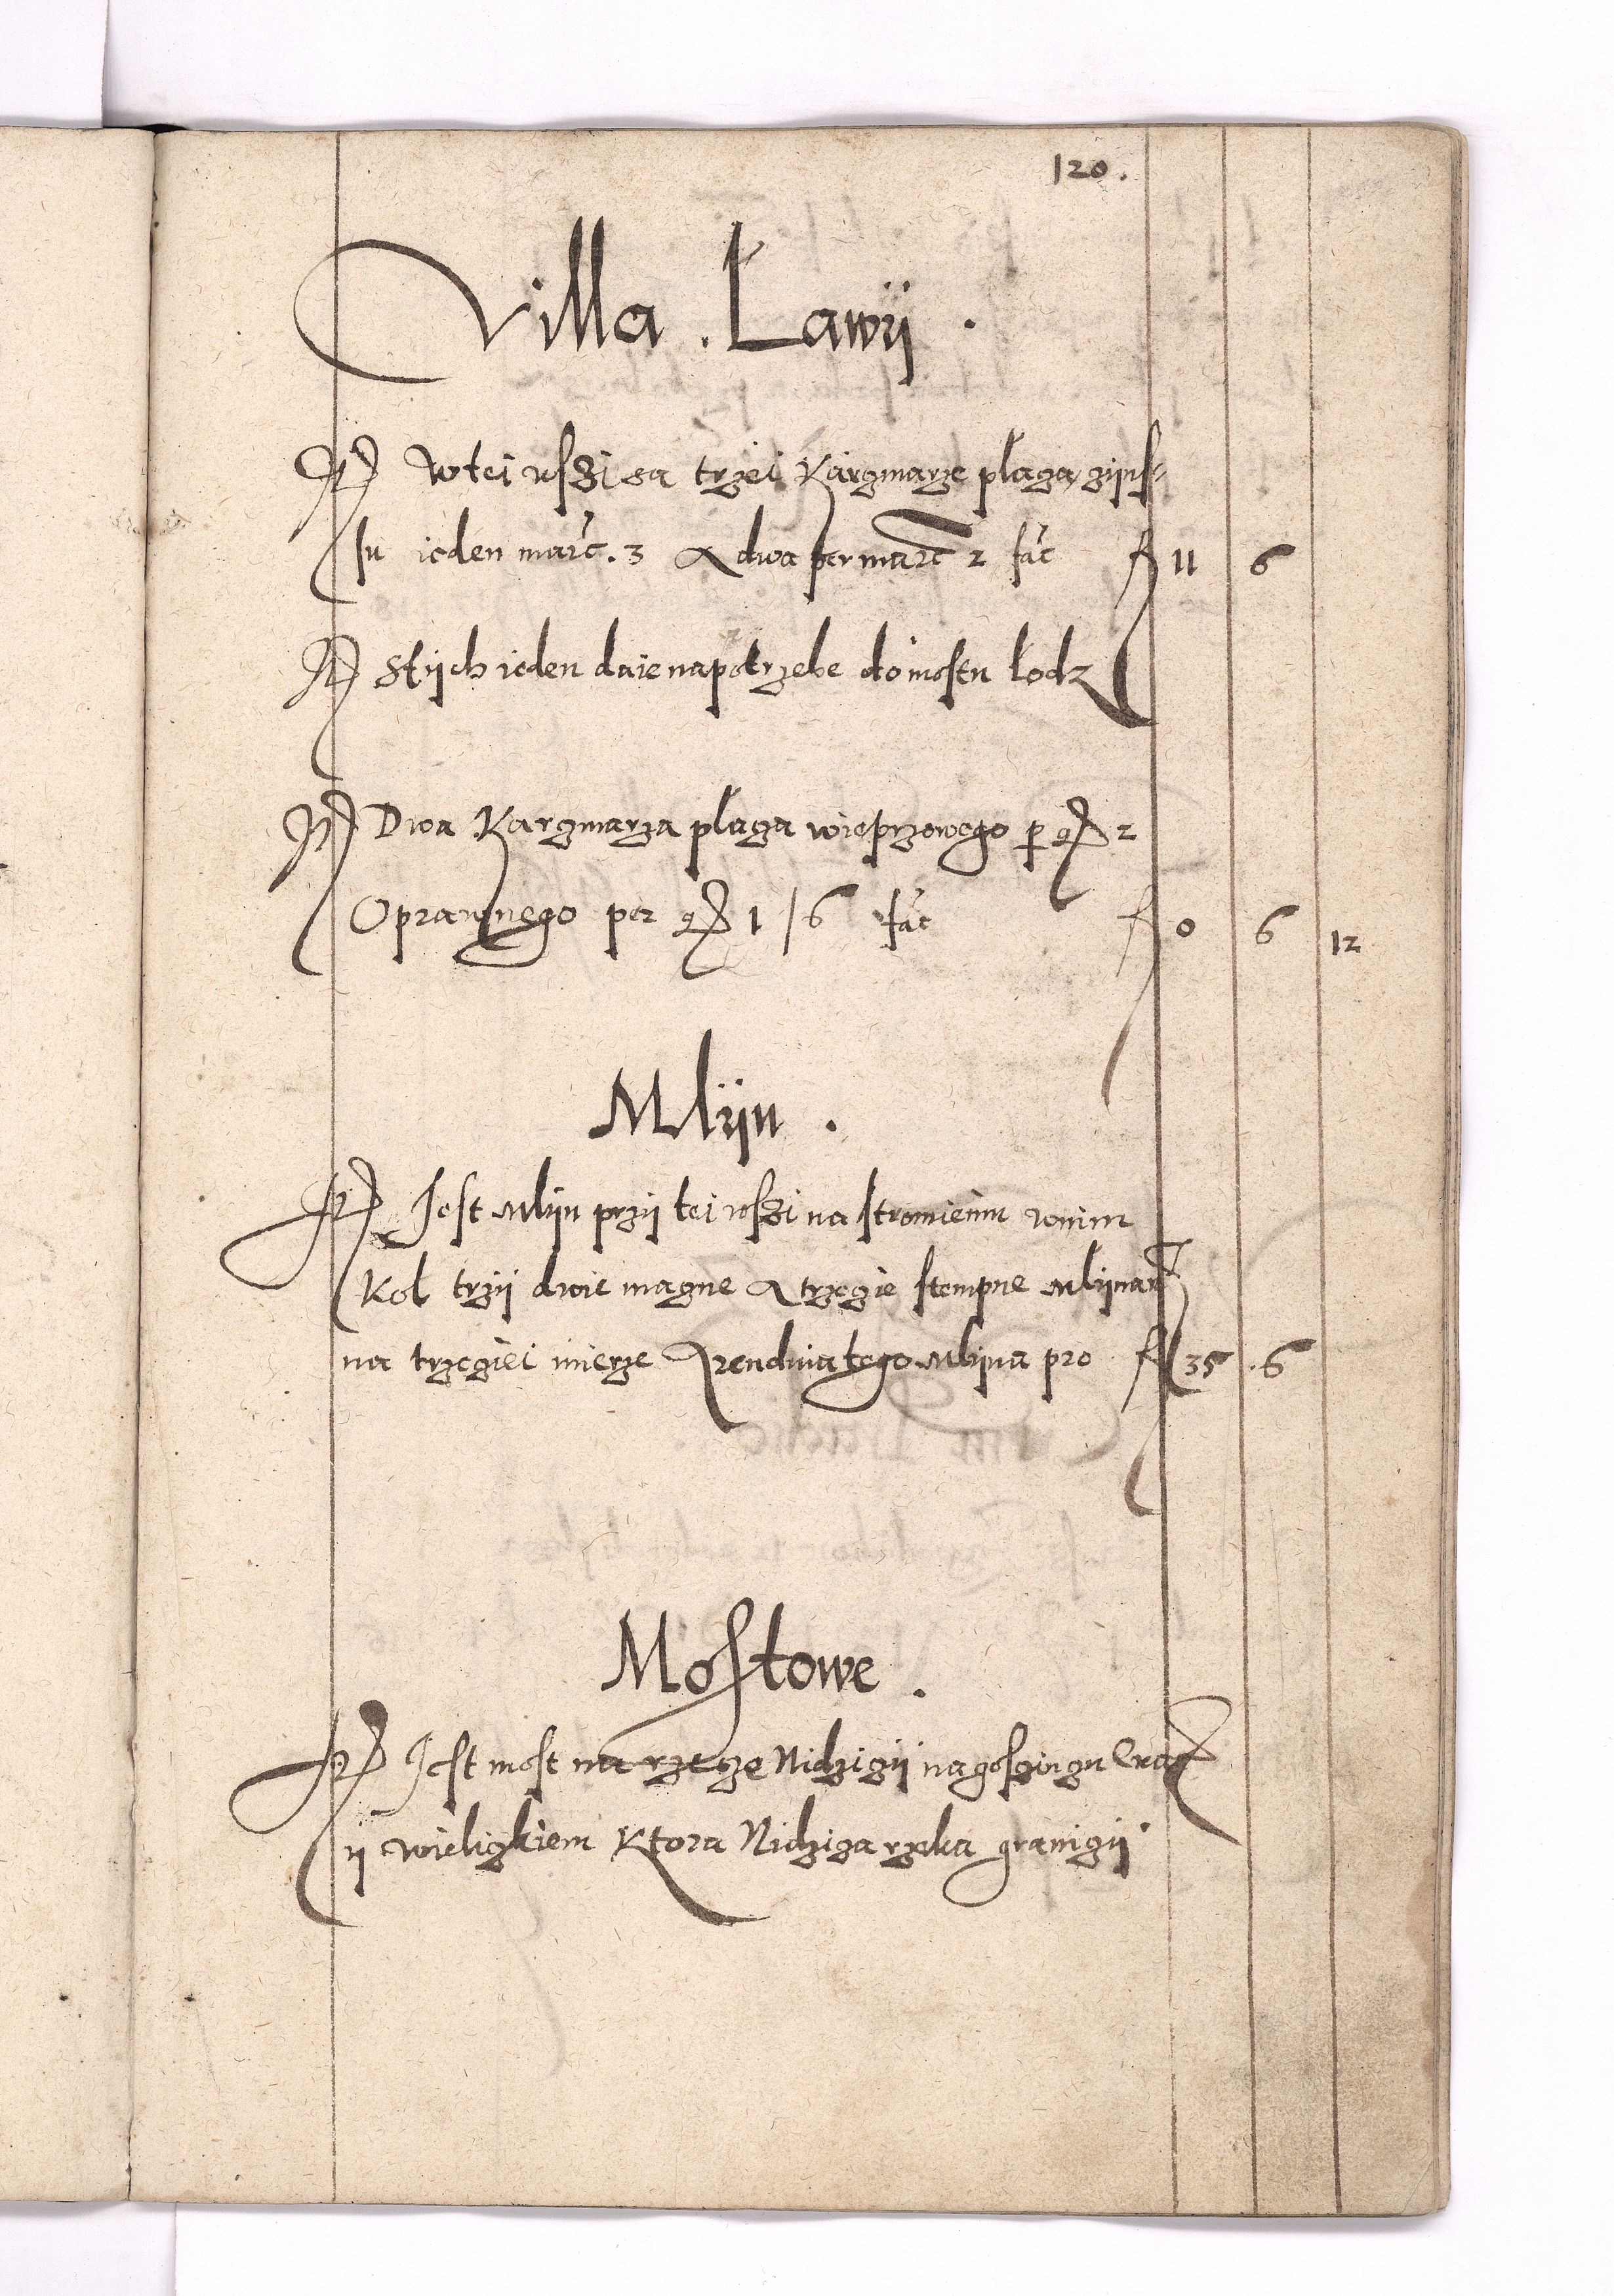 120.
Villa . Ławÿ .
It W tei wszi sa trzei Kargmarze płaga, zÿns-
su ieden marc. 3 A dwa per marc 2 fac f 11 6
It Stÿch ieden daie na potrzebe do mostu łodz
It Dwa Kargmarza płaga wieprzowego p gr 2
Oprawnego per gr 1 / 6 fac f 0 6 12
Mlÿn .
It Jest mlÿn przÿ tei wszi na stromieniu wnim
Kol trzÿ dwie magne A trzegie stempne mlÿnarz
na trzegiei mierze Arendwia tego mlÿna pro f 35 . 6
Mostowe .
It Jest most na rzegze Nidzigÿ na goszingu Crac
ÿ wieligkiem Ktora Nidziga rzeka granigÿ